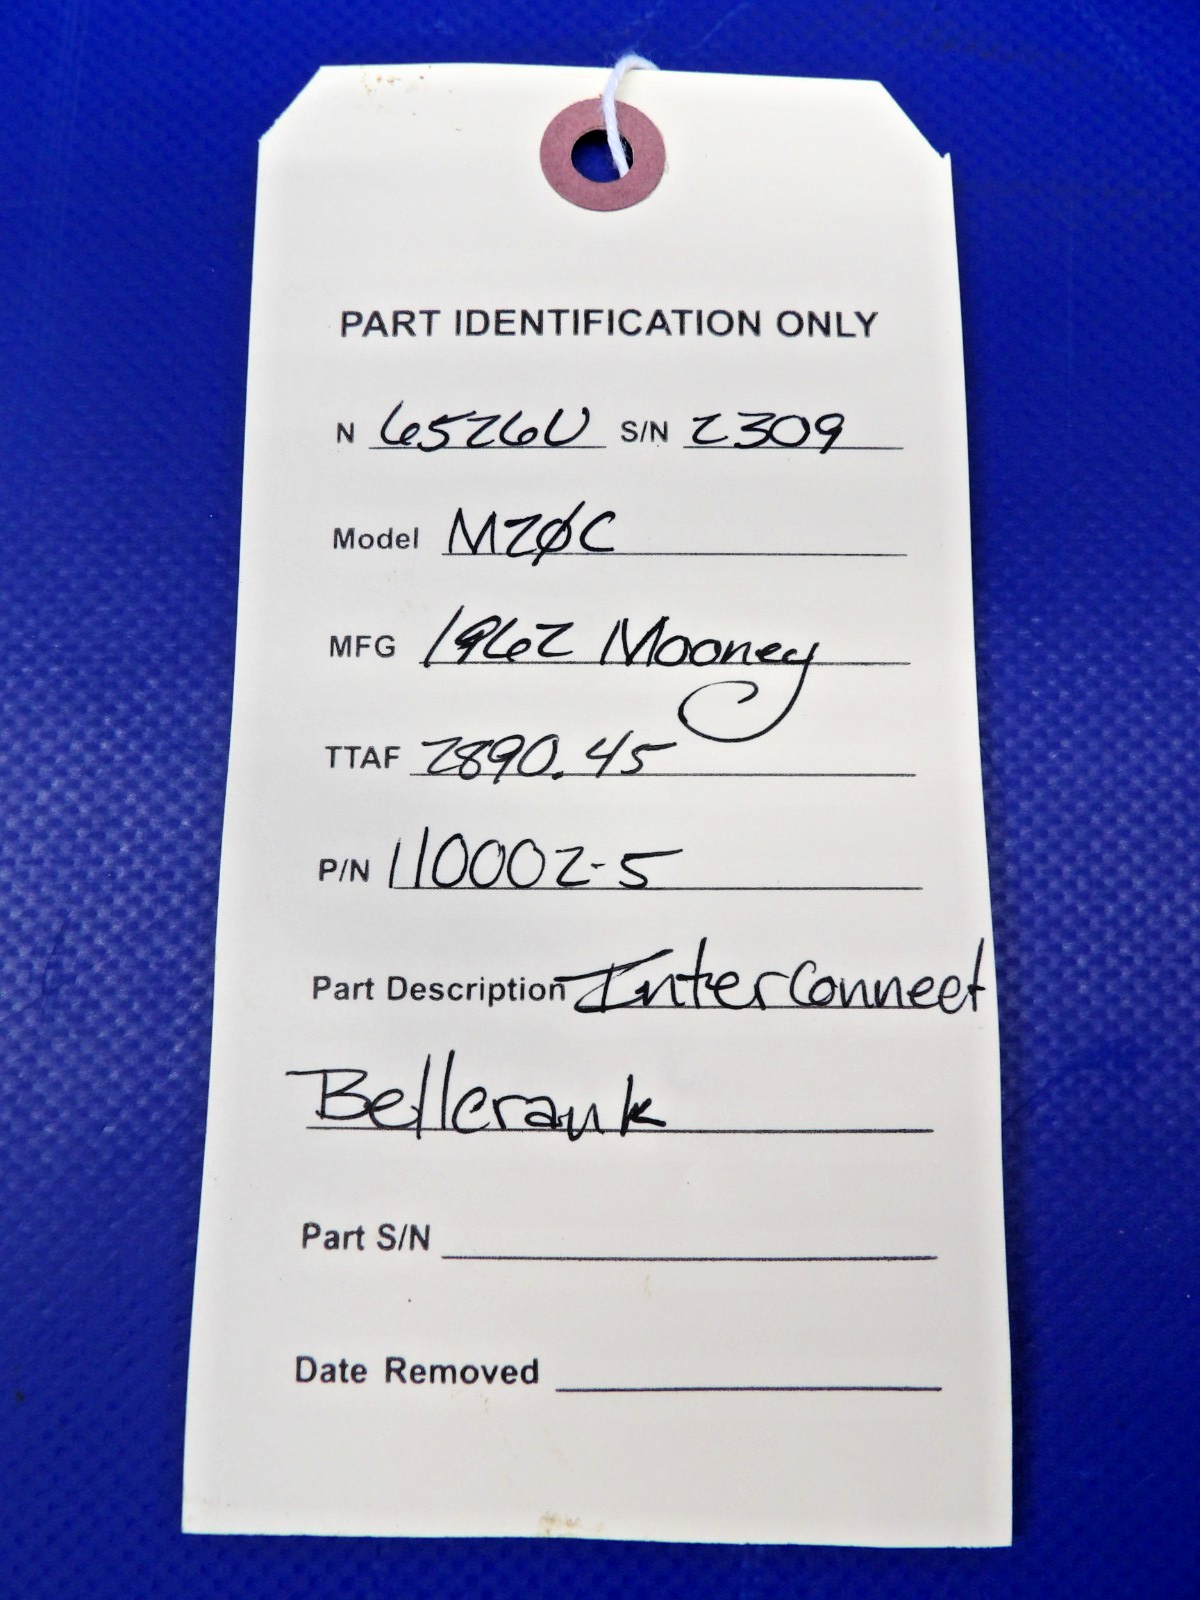 PART IDENTIFICATION ONLY
N 6526U S/N 2309
Model M20C
MFG 1962 Mooney
TTAF 2890.45
P/N 110002-5
Part Description Interconnect
Bellcrank
Part S/N
Date Removed